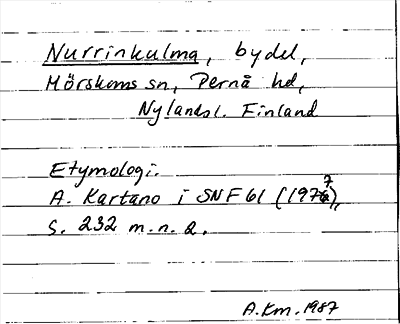 Nurrinkulma, bydel,
Mörskoms sn, Pernå hd,
Nylandsl. Finland
Etymologi.
A. Kartano i SNF 61 (1977),
s. 232 m.n.2.
A.Km. 1987